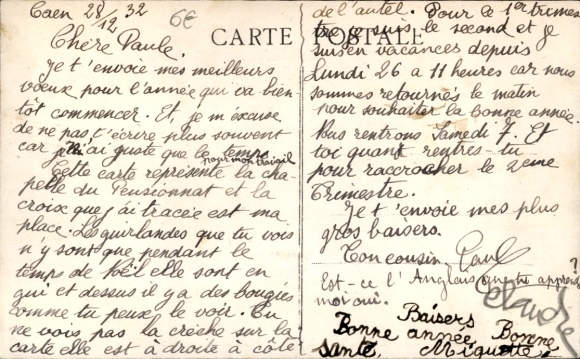 Caen 28/12/32
6€
CARTE POSTALE
Chère Paule.
Je t'envoie mes meilleurs
voeux pour l'année qui va bien-
tôt commencer. Et, je m excuse
de ne pas t'écrire plus souvent
car je n'ai guste que le temps
pour mon travail
Cette carte représente la cha-
pelle du Pensionnat et la
croix que j'ai tracée est ma
place. Les guirlandes que tu vois
n'y sont que pendant le
temps de Noël elle sont en
gui et dessus il y a des bougies
comme tu peux le voir. Tu
ne vois pas la crèche sur la
carte elle est à droite à côté
de l'autel. Pour ce 1er trimes
tre je suis le second et je
suis en vacances depuis
Lundi 26 a 11 heures car nous
sommes retournés le matin
pour souhaiter la bonne année.
Nous rentrons Samedi 7. Et
toi quant rentres-tu
pour raccrocher le 2eme
Trimestre.
Je t'envoie mes plus
gros baisers.
Ton cousin Paul
Est-ce l'Anglais que tu apprends ?
moi oui.
Claude
Baisers
Bonne année, Bonne
santé, Miquette